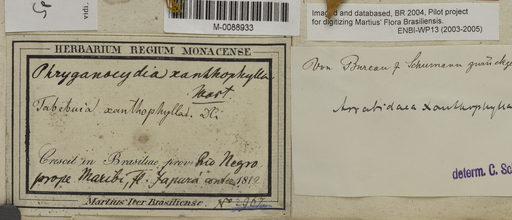 vidi.
M-0088933
Imaged and databased, BR 2004, Pilot project
for digitizing Martius' Flora Brasiliensis.
ENBI-WP13 (2003-2005)
HERBARIUM REGIUM MONACENSE
Phryganocydia xanthophylla
Mart
Tabebuia xanthophylla. DC
Crescit in Brasiliae prov. Rio Negro
prope Maribi, fl. Japurá 1819
Martius Iter Brasiliense. No
Von Bureau & Schumann
Arrabidaea xanthophylla
determ. C. Sc